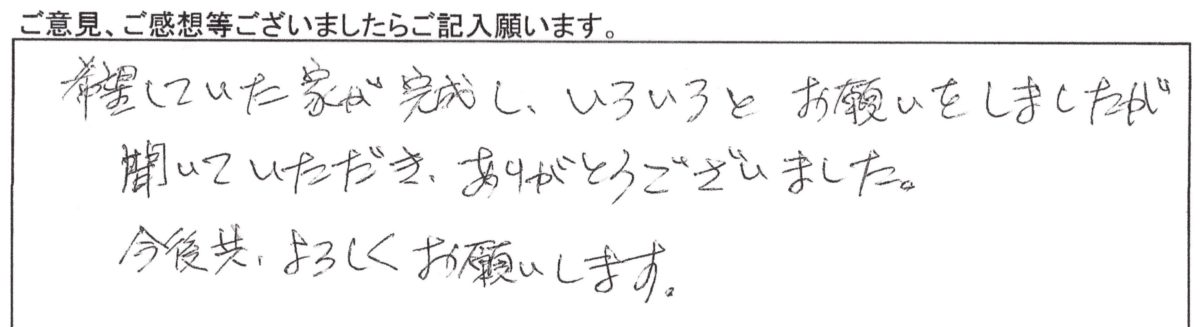 ご意見、ご感想等ございましたらご記入願います。
希望していた家が完成し、いろいろと お願いをしましたが
聞いていただき、ありがとうございました。
今後共、よろしくお願いします。